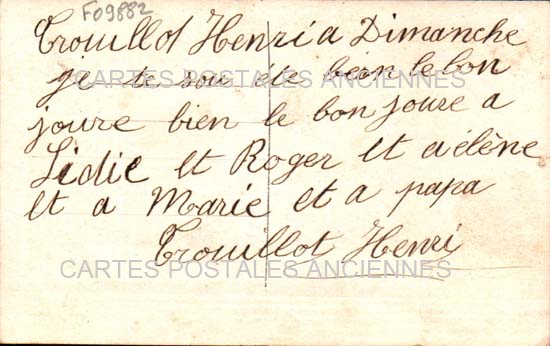 F09882
Trouillot Henri a Dimanche
je te sou éte bien le bon
CARTES POSTALES ANCIENNES
joure bien le bon joure a
Lidie et Roger et a élène
et a Marie et a papa
Trouillot Henri
CARTES POSTALES ANCIENNES